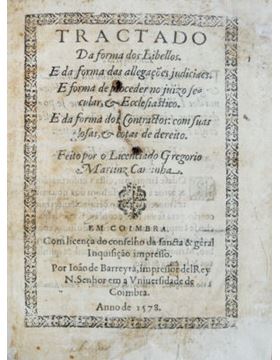 TRACTADO
Da forma dos Libellos.
E da forma das allegações judiciaes.
E forma de proceder no juizo se-
cular, & Ecclesiastico.
E da forma dos Contractos: com suas
glosas, & cotas de dereito.
Feito por o Licenciado Gregorio
Martinz Caminha.
EM COIMBRA.
Com licença do conselho da sancta & géral
Inquisição impresso.
Por Ioão de Barreyra, impressor del Rey
N. Senhor em a Vniuersidade de
Coimbra.
Anno de 1578.